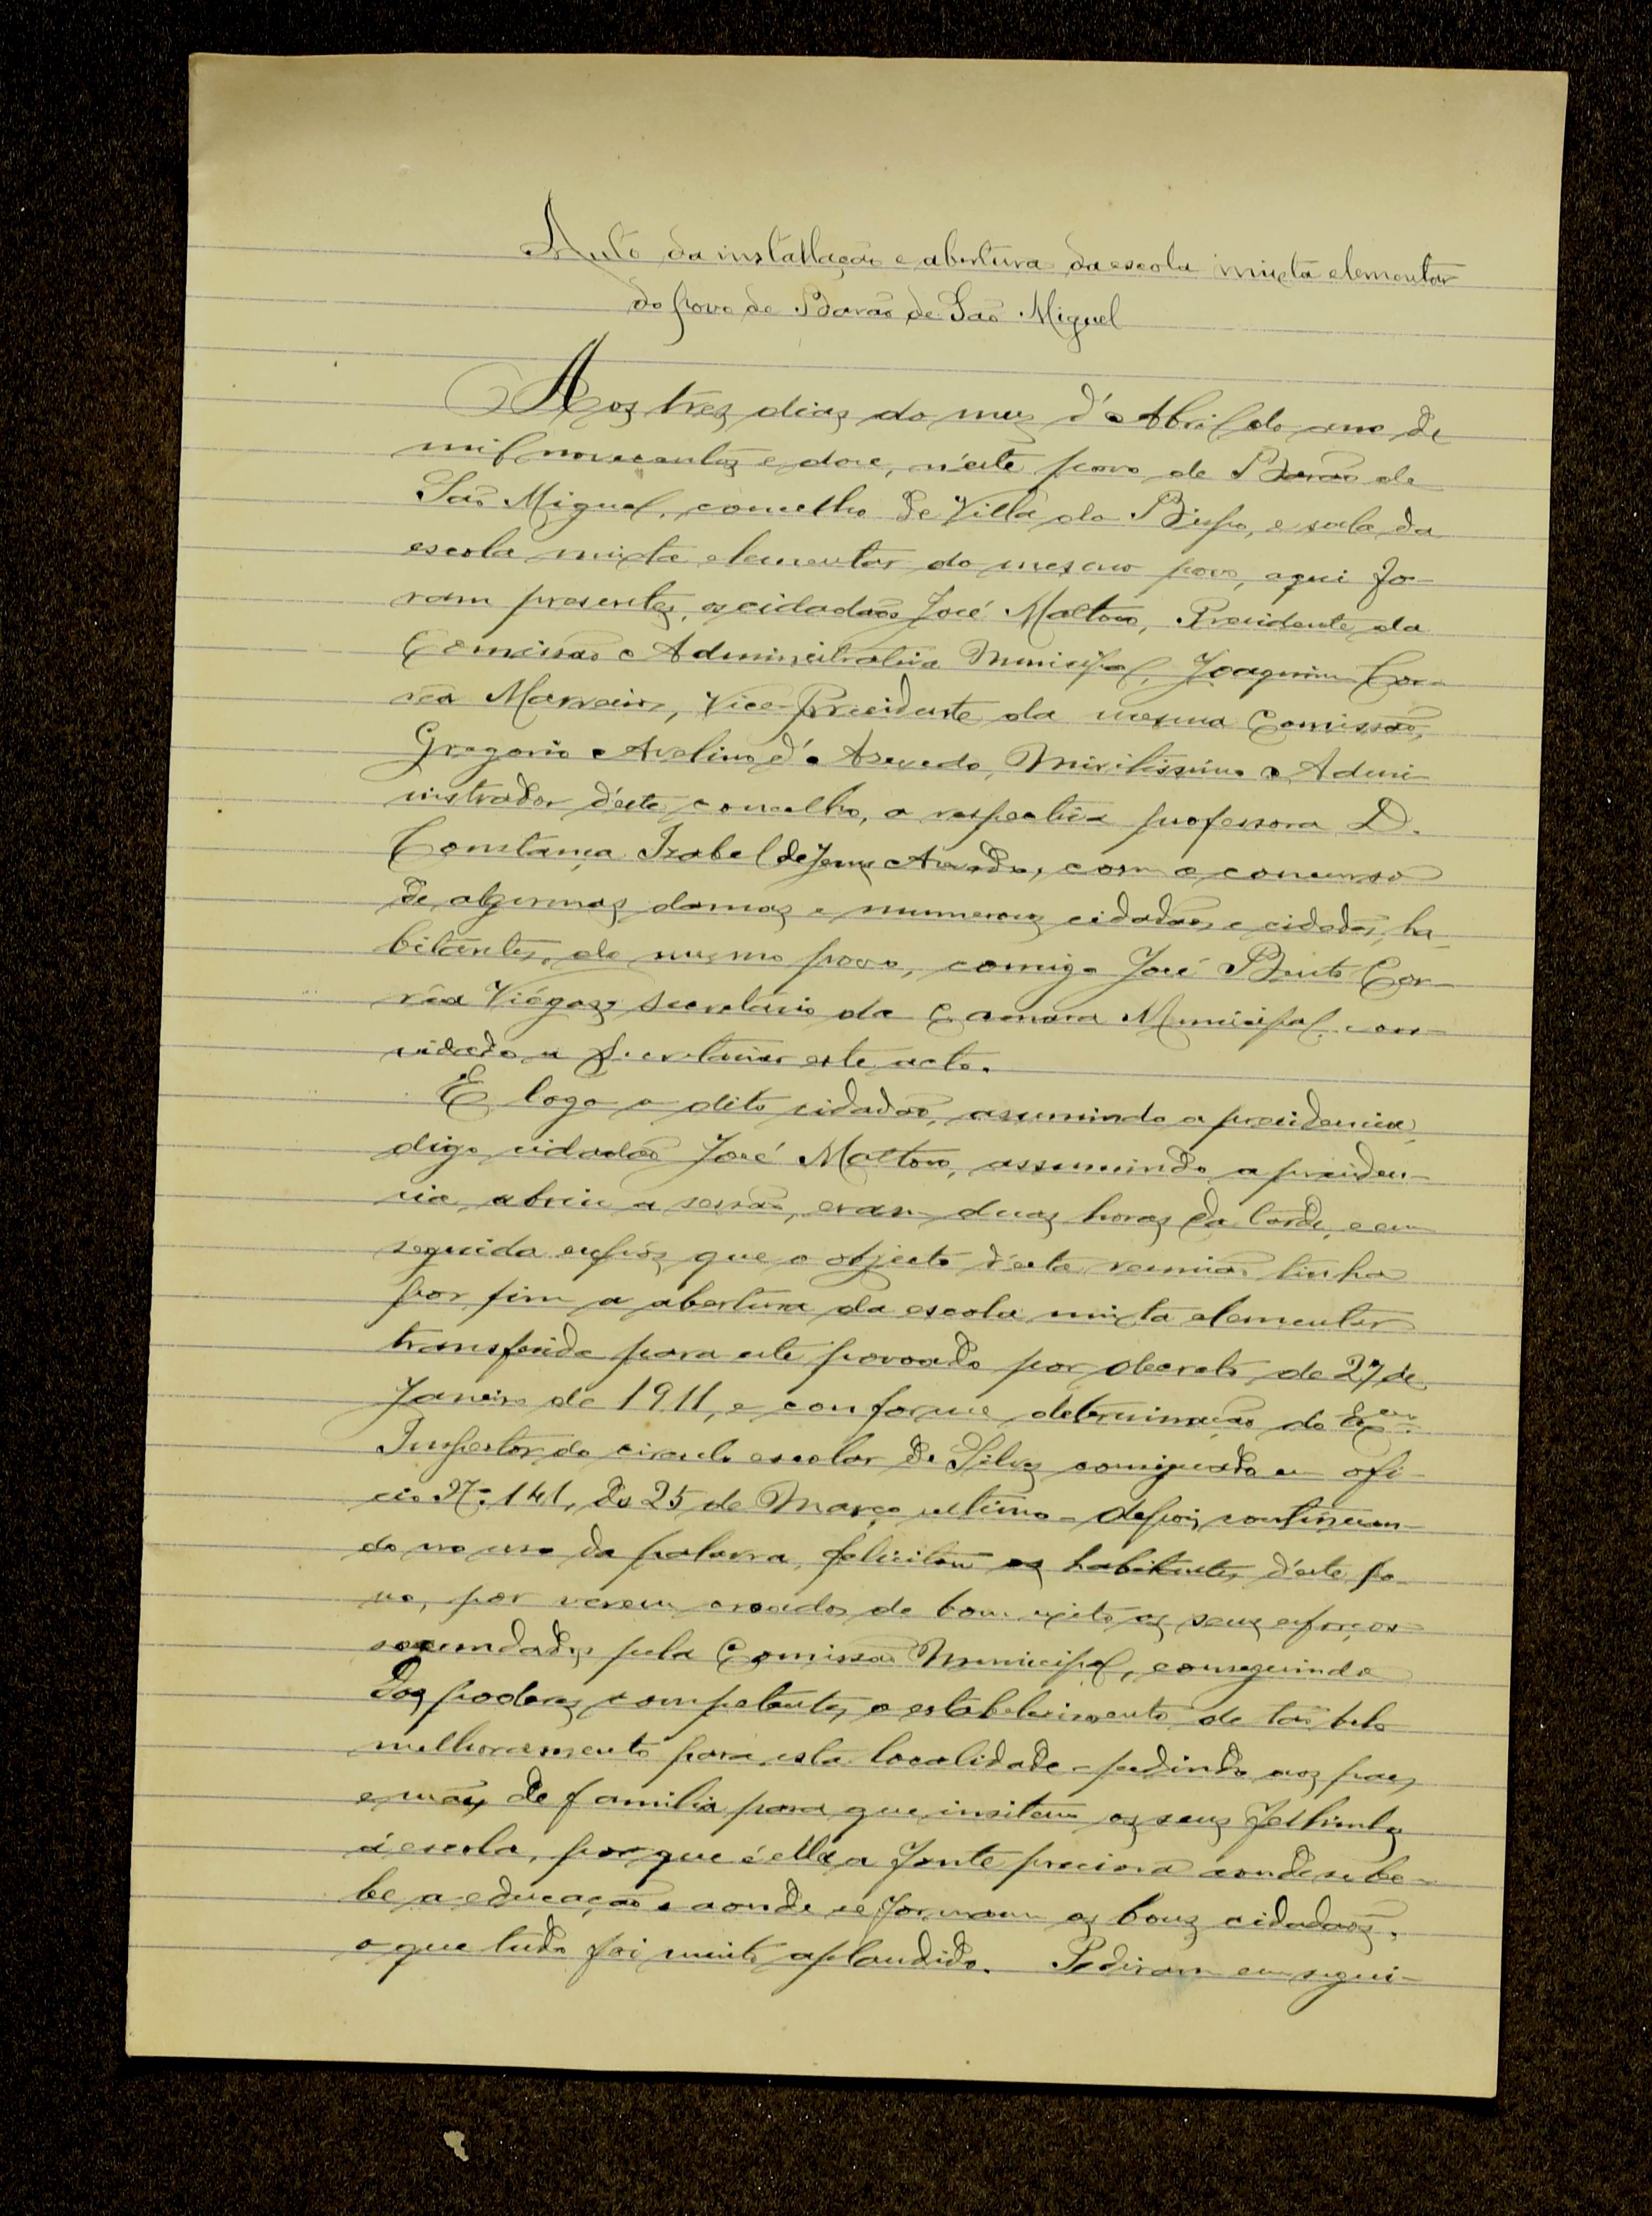 Auto da installação e abertura da escola mixta elementar
do povo de Barão de São Miguel
Aos tres dias do mez d'Abril do ano de
mil novecentos e doze, n'este povo de Barão de
São Miguel, concelho de Villa do Bispo, e sala da
escola mixta elementar do mesmo povo, aqui fo-
ram presentes, os cidadãos José Mattoso, Presidente da
Comissão Administrativa Municipal, Joaquim Cor-
rêa Marreiros, Vice-Presidente da mesma Comissão,
Gregorio Avelino d'Azevedo, Meritissimo Admi-
nistrador d'este concelho, a respectiva professora D.
Constança Izabel de Jesus Azevedo, com o concurso
de algumas damas e numerosos cidadãos e cidadãs, ha-
bitantes, do mesmo povo, comigo José Bento Cor-
rêa Viégas, Secretário da Camara Municipal, con-
vidado a secretariar este acto.
E logo o dito cidadão, asumindo a presidencia,
digo cidadão José Mattoso, assumindo a presiden-
cia, abriu a sessão, eram duas horas da tarde, e em
seguida expôz que o objecto d'esta reunião tinha
por fim a abertura da escola mixta elementar
transferida para este povoado por decreto de 27 de
Janeiro de 1911, e conforme determinação do Exmo.
Inspector do circulo escolar de Silves consignada em ofi-
cio Nº. 141, de 25 de Março ultimo - depois continuan-
do no uso da palavra, felicitou os habitantes, d'este po-
vo, por verem croados de bom exito os seus esforços
secundados pela Comissão Municipal, conseguindo
dos poderes competentes o estabelecimento de tão belo
melhoramento para esta localidade - pedindo aos paes
e mães de familia para que insitem os seus filhinhos
á escola, por que é ella a fonte preciosa aonde se be-
be a educação e aonde se formam os bons cidadãos,
o que tudo foi muito aplaudido. Pediram em segui-